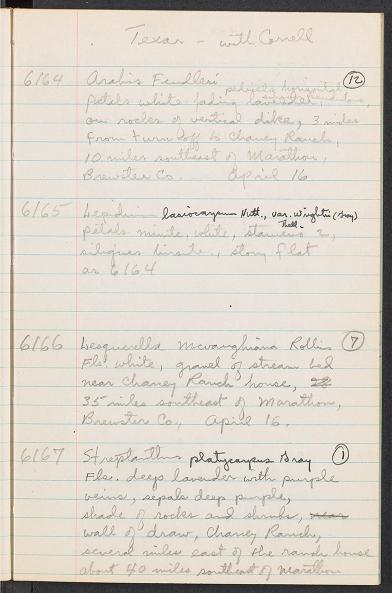 Texas - with Correll
6164 Arabis Fendleri (12)
pedicels horizontal
petals white fading lavender,
on rocks of vertical dike, 3 miles
from turn off to Chaney Ranch,
10 miles southeast of Marathon,
Brewster Co. April 16
6165 Lepidium lasiocarpum Nutt., var. wrightii (Gray)
Thell.
petals minute, white, stamens 2,
siliques hirsute, stony flat
as 6164
6166 Lesquerella mcvaughiana Rollins (7)
Fls. white, gravel of stream bed
near Chaney Ranch house,
35 miles southeast of Marathon,
Brewster Co., April 16.
6167 Streptanthus platycarpus Gray (1)
Fls. deep lavender with purple
veins, sepals deep purple,
shade of rocks and shrubs, near
wall of draw, Chaney Ranch,
several miles east of the ranch house
about 40 miles southeast of Marathon